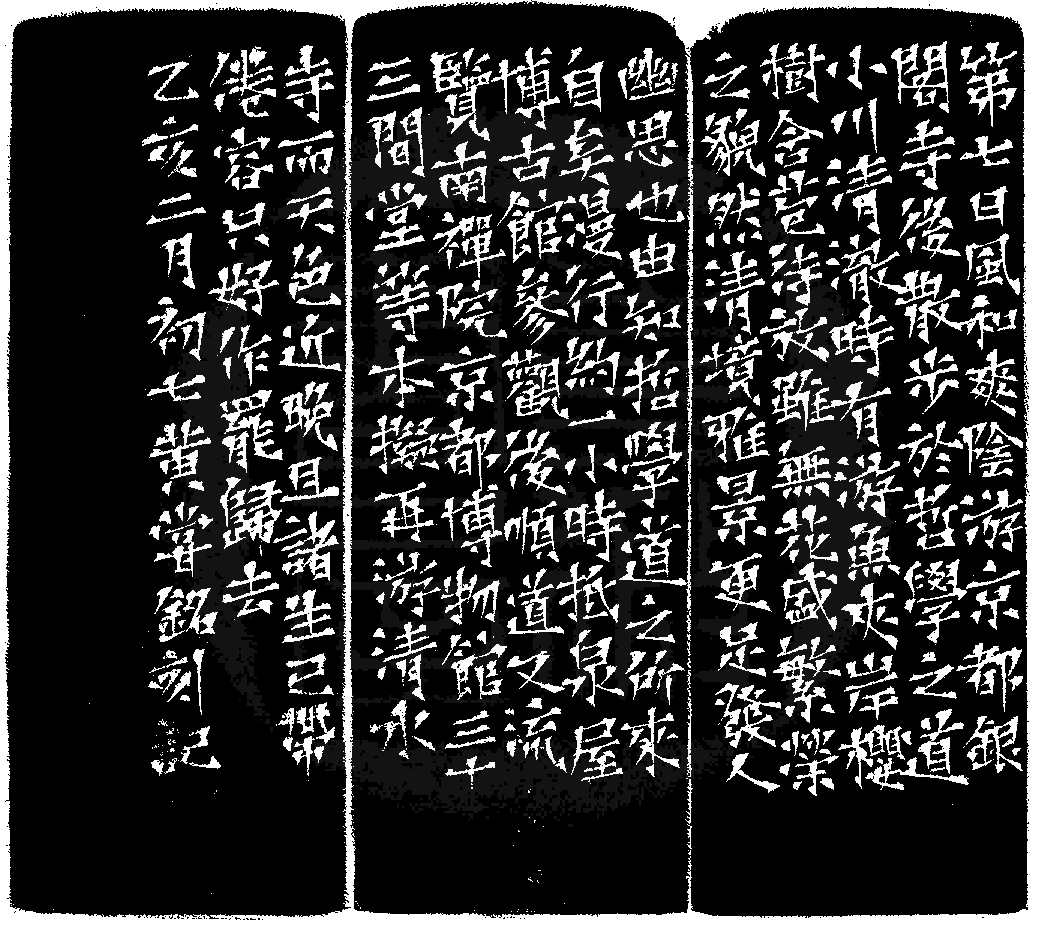 第七日風和爽陰游京都銀
閣寺後散步於哲學之道
小川清澈時有游魚夾岸櫻
樹含苞待放雖無花盛繁榮
之貌然清境雅景更足發人
幽思也由知哲學道之所來
自矣漫行約一小時抵泉屋
博古館參觀後順道又流
覽南禪院京都博物館三十
三間堂等本擬再游清水
寺而天色近晚且諸生已帶
倦容只好作罷歸去
乙亥二月初七黃嘗銘刻記